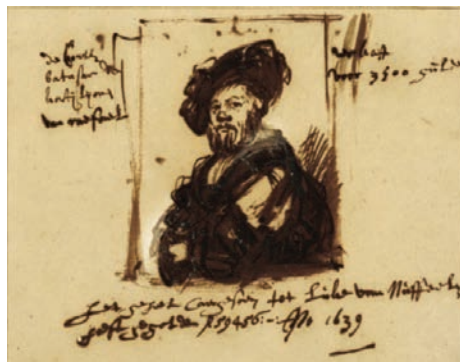 de Conte
batasar de
kastijlyone
van rafael
verkoft
voor 3500 gulde
het geheel caergesoen tot Luke van Nuffeele
heeft gegolden f 59456:- Ano 1639